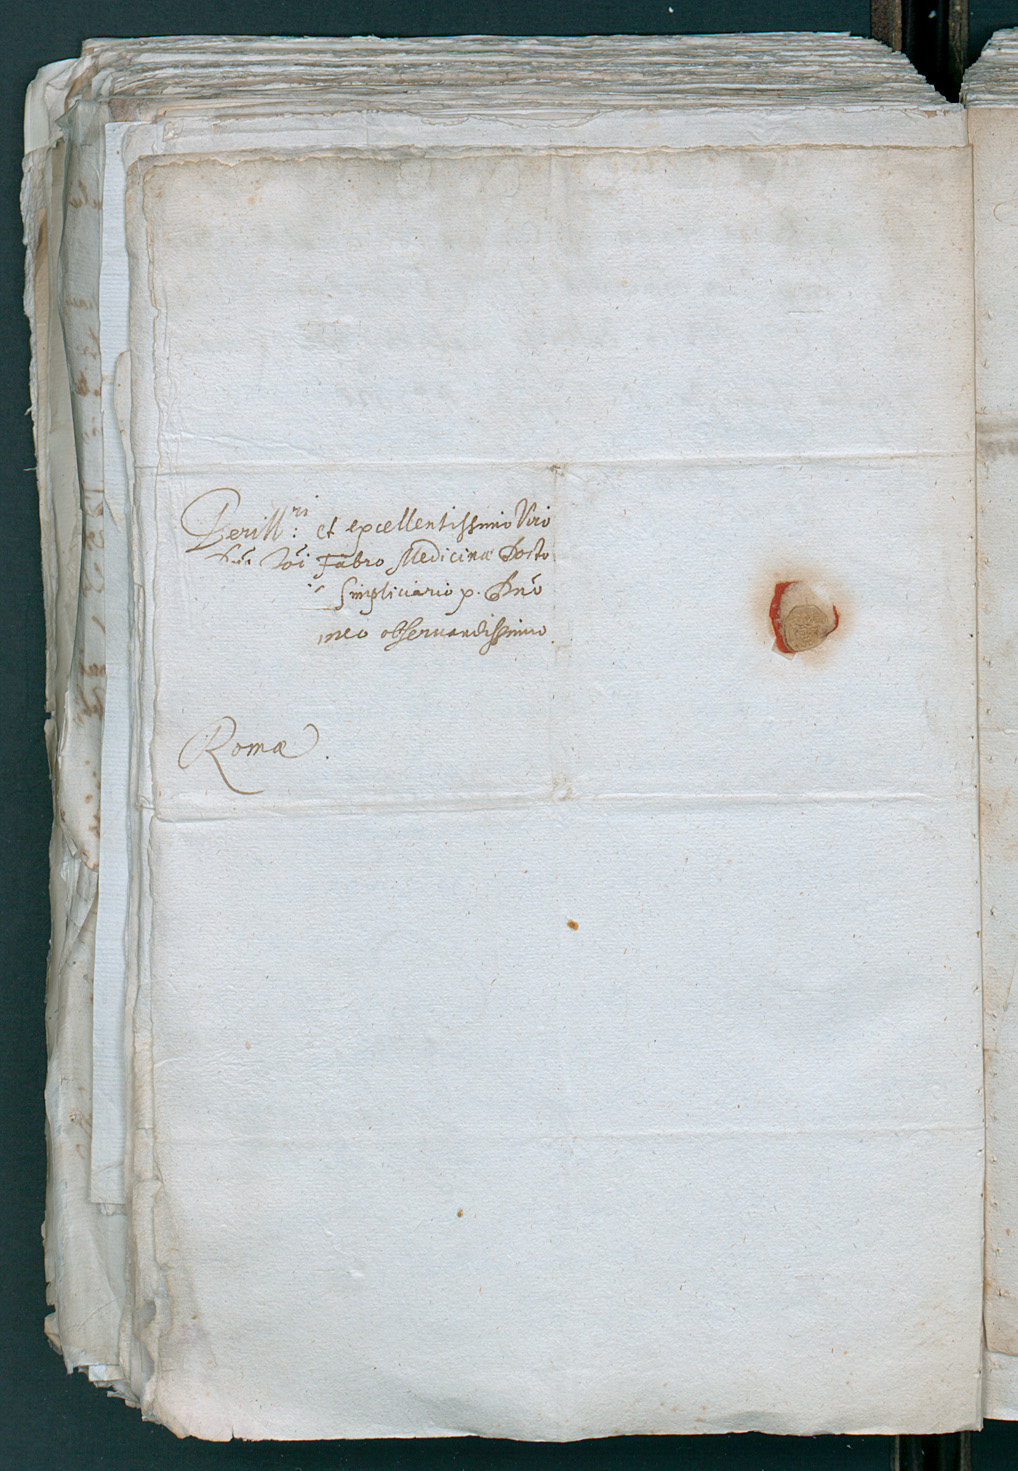 Perill:ri et excellentissimo Viro
Dno Joi Fabro Medicinæ Docto
ri Simpliciario p. Dno
meo observandissimo.
Romæ.